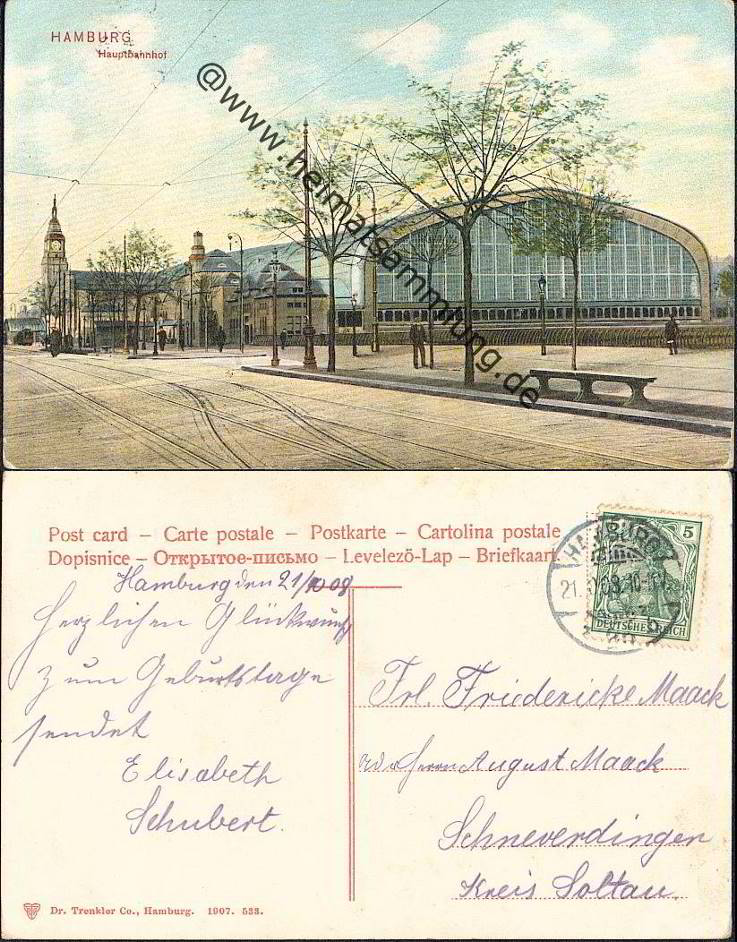 HAMBURG
Hauptbahnhof
@www.heimatsammlung.de
Post card – Carte postale – Postkarte – Cartolina postale
Dopisnice – Открытое-письмо – Levelező-Lap – Briefkaart.
HAMBURG
5
DEUTSCHES REICH
Hamburg den 21/ 08
Herzlichen Glückwunsch
zum Geburtstage
sendet
Elisabeth
Schubert.
Frl. Friedericke Maack
Herrn August Maack
Schneverdingen
Kreis Soltau.
Dr. Trenkler Co., Hamburg. 1907. 533.